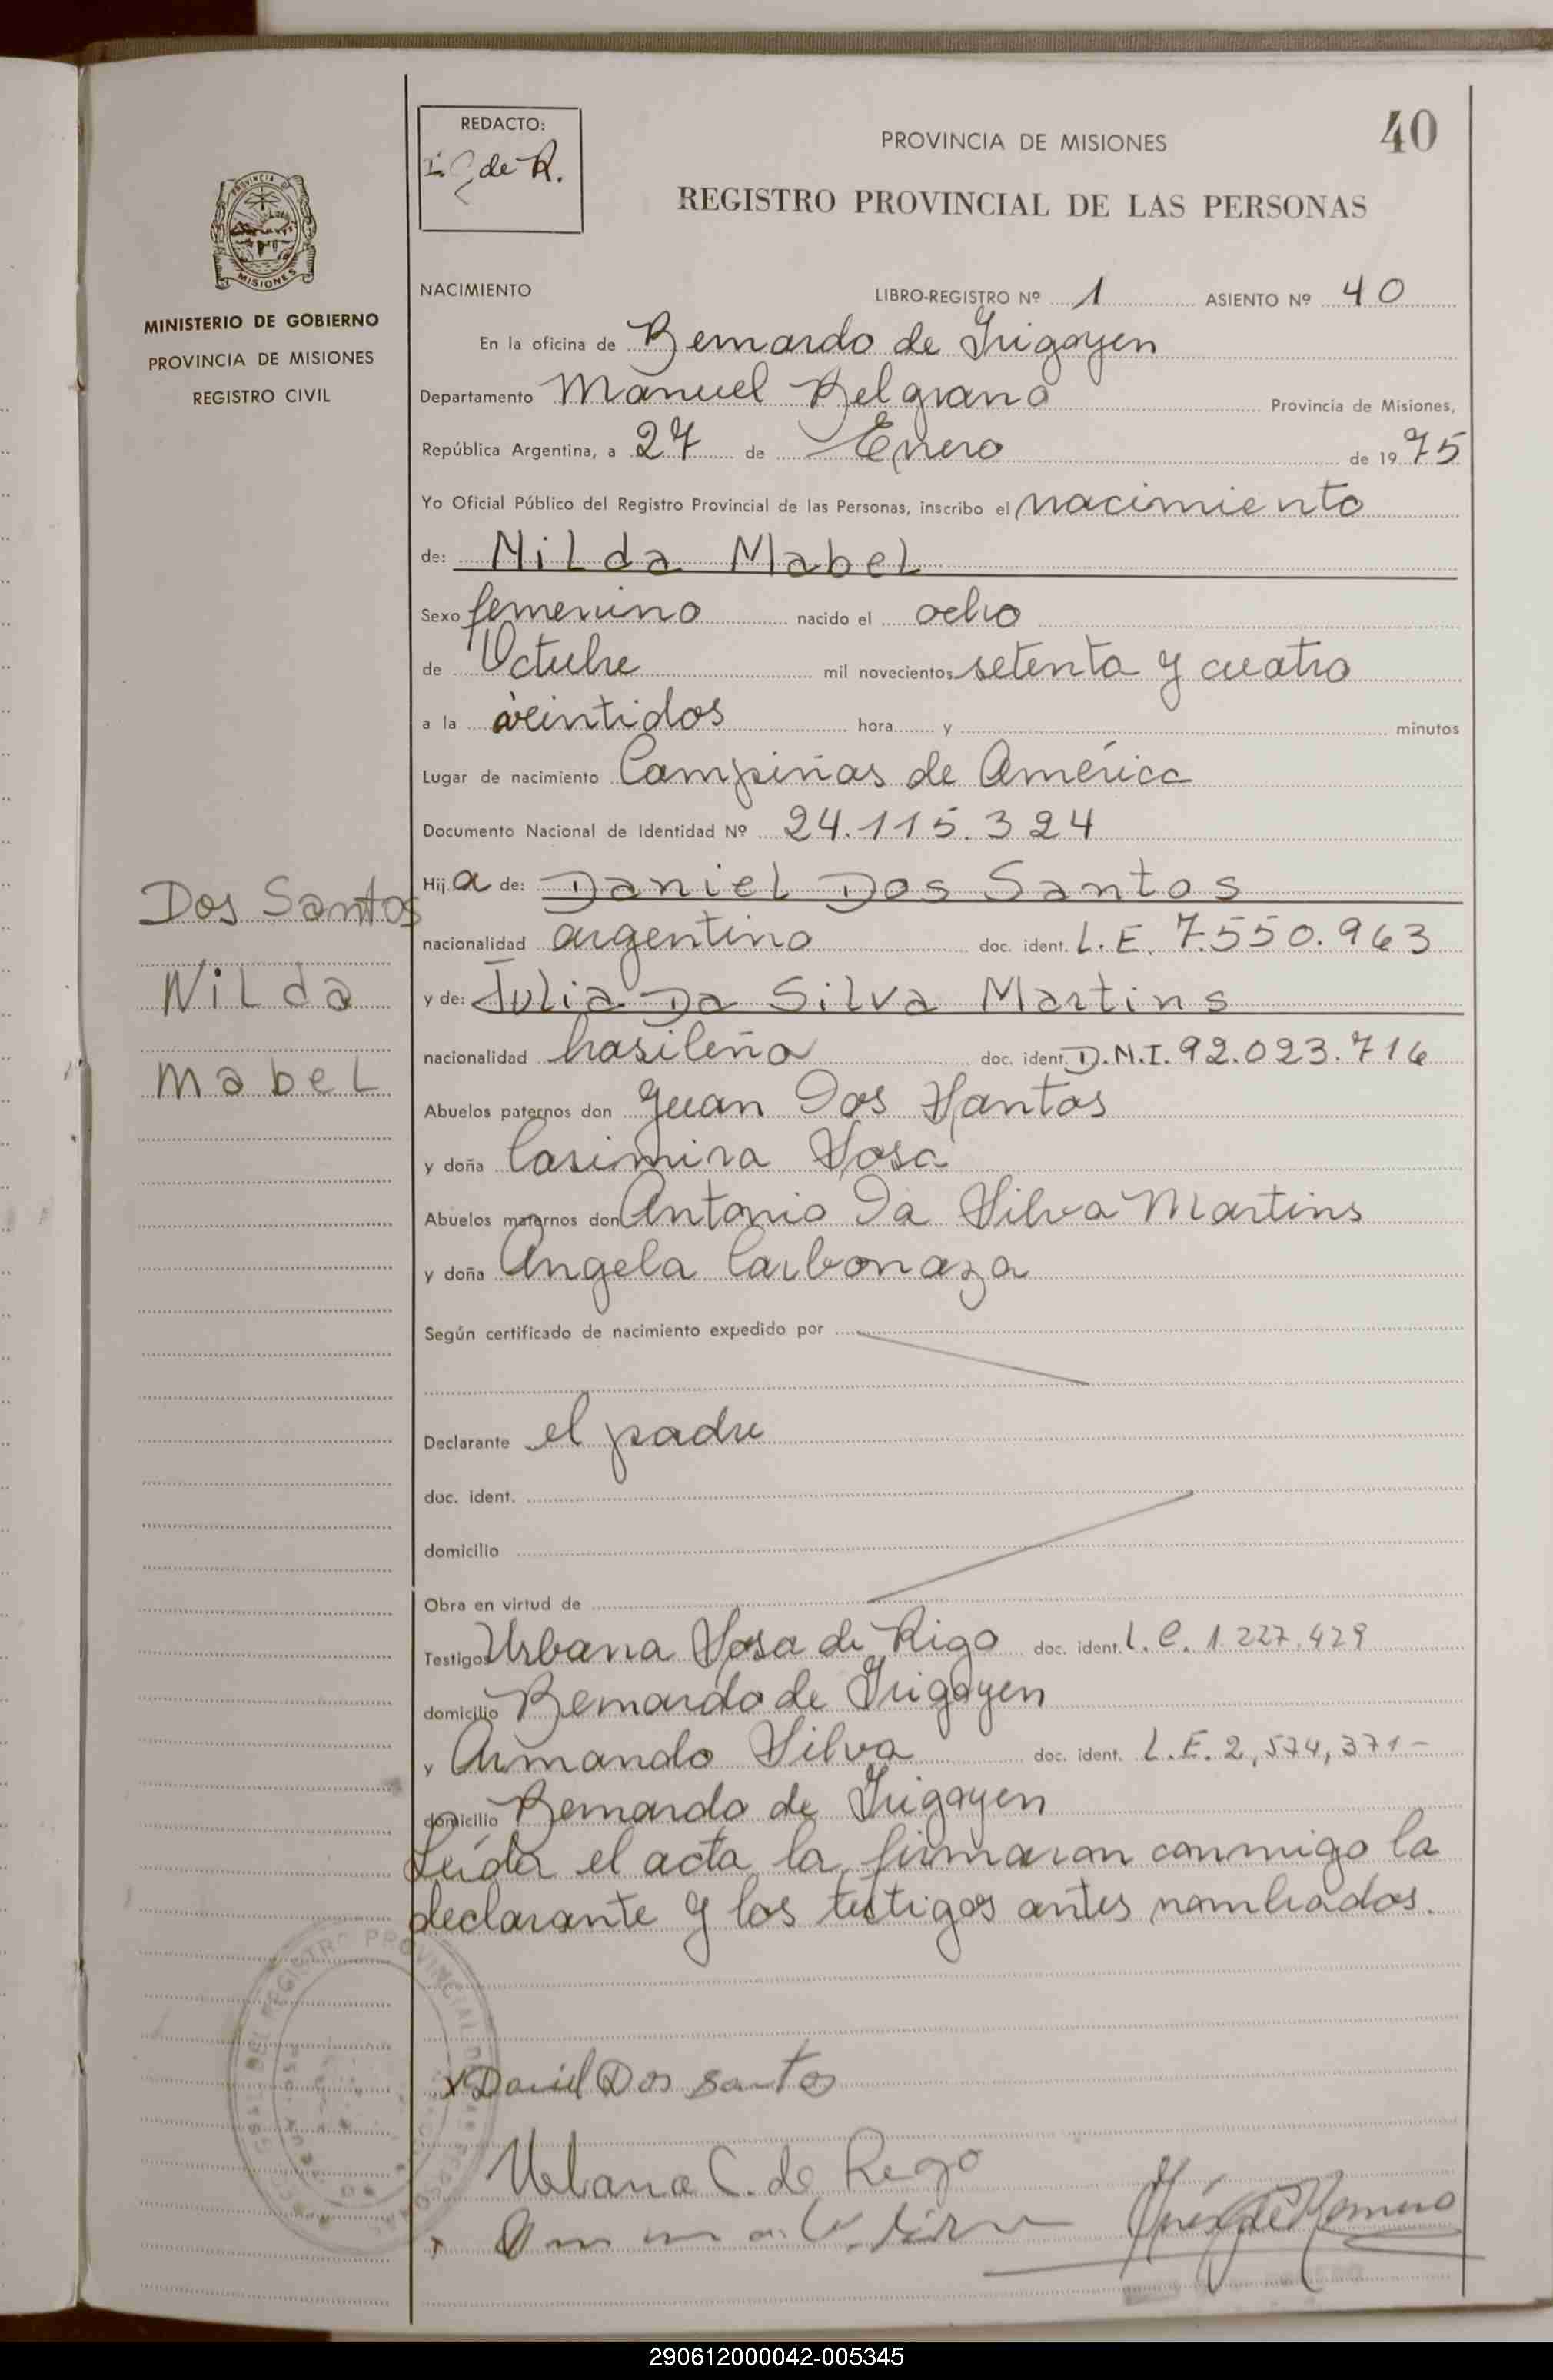 40
REDACTO:
de R.
PROVINCIA DE MISIONES
REGISTRO PROVINCIAL DE LAS PERSONAS
PROVINCIA DE
MISIONES
MINISTERIO DE GOBIERNO
PROVINCIA DE MISIONES
REGISTRO CIVIL
NACIMIENTO LIBRO-REGISTRO Nº 1 ASIENTO Nº 40
En la oficina de Bernardo de Irigoyen
Departamento Manuel Belgrano Provincia de Misiones,
República Argentina, a 27 de Enero de 1975
Yo Oficial Público del Registro Provincial de las Personas, inscribo el nacimiento
de: Nilda Mabel
Sexo femenino nacido el ocho
de Octubre mil novecientos setenta y cuatro
a la veintidos hora y minutos
Lugar de nacimiento Campiñas de América
Documento Nacional de Identidad Nº 24.115.324
Hija de: Daniel Dos Santos
Dos Santos
nacionalidad argentino doc. ident. L.E. 7.550.963
Nilda
y de: Julia Da Silva Martins
nacionalidad brasileña doc. ident. D.N.I. 92.023.716
Mabel
Abuelos paternos don Juan Dos Santos
y doña Casimira Sosa
Abuelos maternos don Antonio Da Silva Martins
y doña Angela Carbonaza
Según certificado de nacimiento expedido por
Declarante el padre
doc. ident.
domicilio
Obra en virtud de
Testigos Urbana Sosa de Rigo doc. ident. L.C. 1.227.429
domicilio Bernardo de Irigoyen
y Armando Silva doc. ident. L.E. 2,574,371-
domicilio Bernardo de Irigoyen
Leída el acta la firmaron conmigo la
declarante y los testigos antes nombrados.
x Daniel Dos Santos
Urbana C. de Rego
de Romero
290612000042-005345